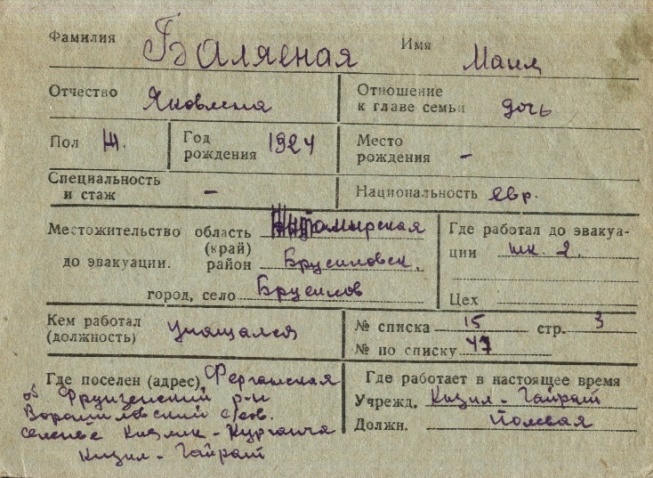 Фамилия Балясная Имя Маня
Отчество Яковлевна Отношение к главе семьи дочь
Пол Ж. Год рождения 1924 Место рождения -
Специальность и стаж - Национальность евр.
Местожительство область (край) Житомирская Где работал до эвакуации шк. 2.
до эвакуации. район Брусиловск.
город, село Брусилов Цех
Кем работал (должность) учащался № списка 15 стр. 3
№ по списку 47
Где поселен (адрес) Ферганская Где работает в настоящее время
об Фрунзенский р-н Учрежд. Кизил-Гайрат
Ворошиловский с/сов. Должн. полевая
селенье Кизлик-Курганча
Кизил-Гайрат